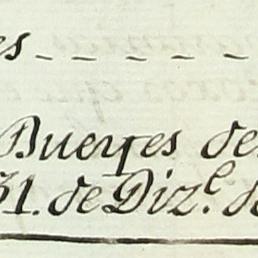 es
Bueyes de
31. de Diz.e d